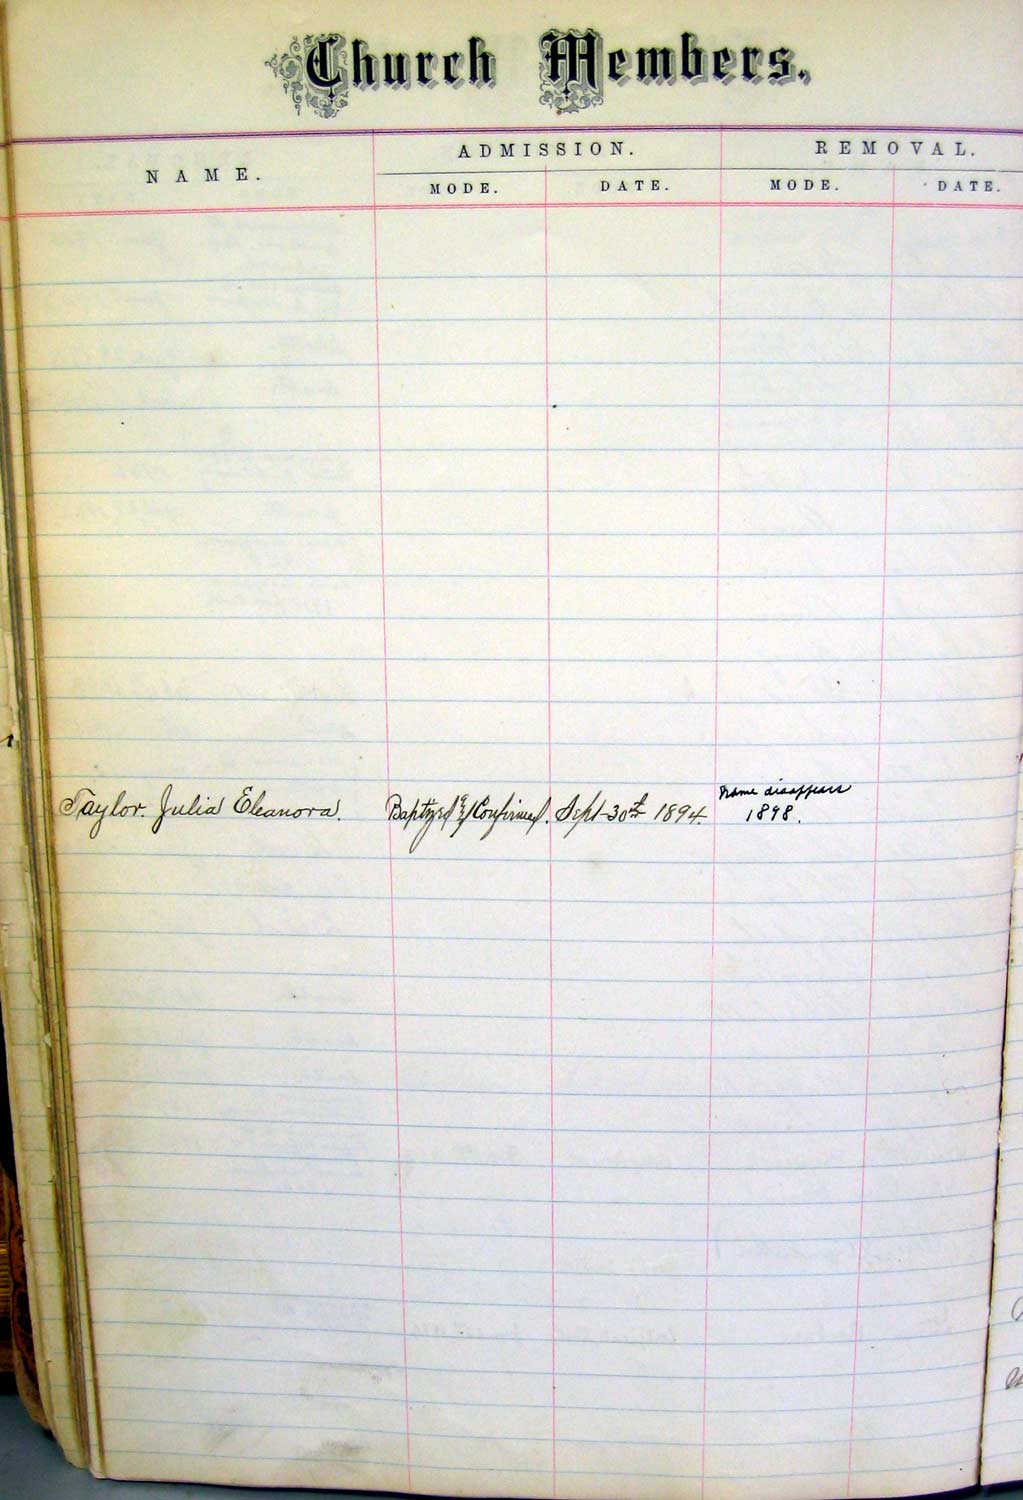 Church Members.
NAME.
ADMISSION.
REMOVAL.
MODE.
DATE.
MODE.
DATE.
Taylor. Julia Eleanora.
Baptyzed & Confirmed.
Sept 30th 1894.
name disappears
1898.